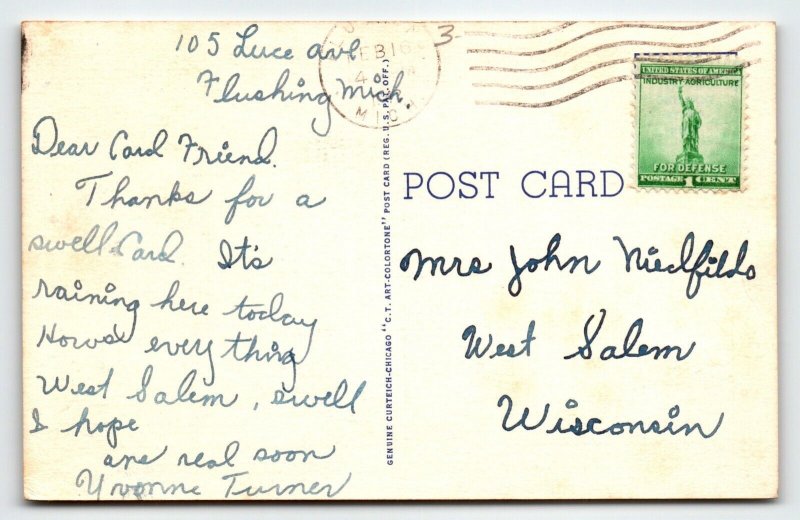 105 Luce ave
Flushing Mich.
Dear Card Friend.
Thanks for a
swell Card. It's
raining here today
Hows everything
West Salem, swell
I hope
ans real soon
Yvonne Turner
FEB 16
MICH.
3
GENUINE CURTEICH-CHICAGO "C.T. ART-COLORTONE" POST CARD (REG. U.S. PAT. OFF.)
POST CARD
UNITED STATES OF AMERICA
INDUSTRY AGRICULTURE
FOR DEFENSE
POSTAGE 1 CENT
Mrs John Niedfilds
West Salem
Wisconsin